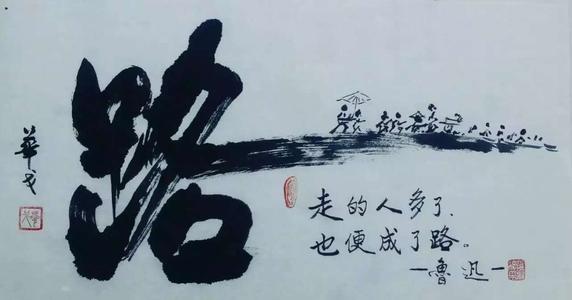 路
走的人多了、
也便成了路。
—魯迅—
華戈